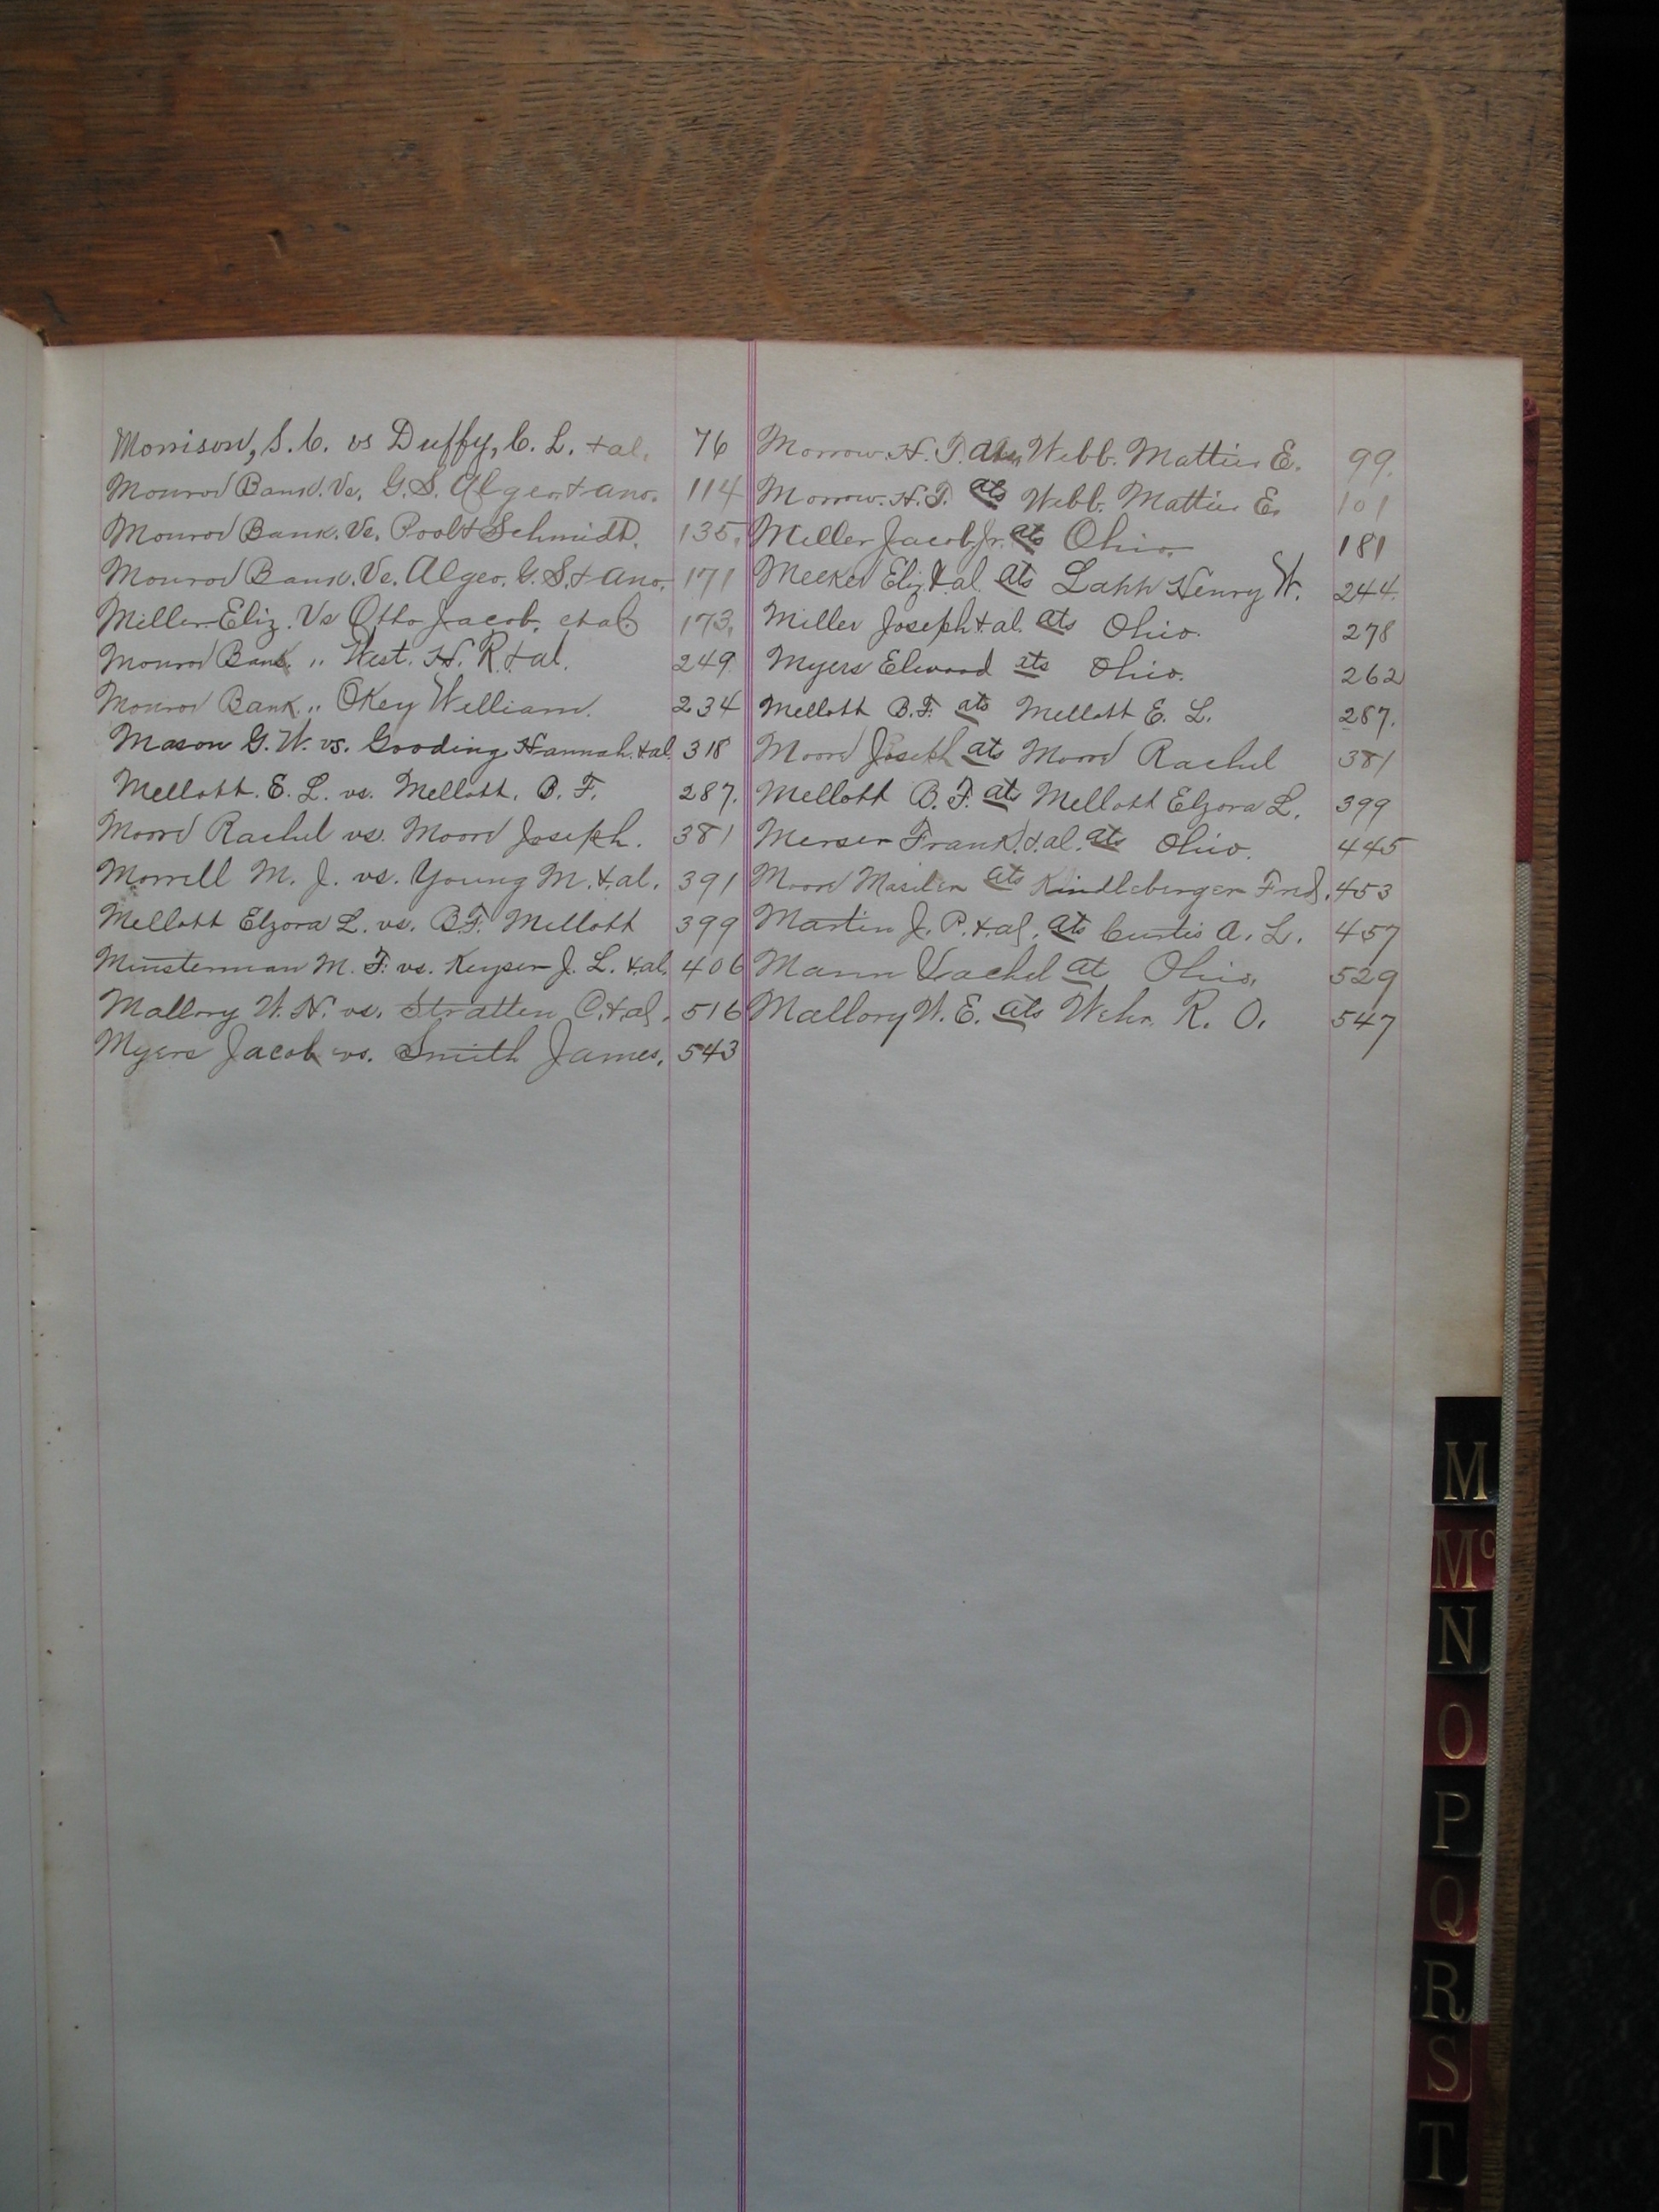 Morrison, S. C. vs Duffy, C. L. + al. 76
Monroe Bank. Vs. G. S. Algeo. + ano. 114
Monroe Bank. Vs. Pool + Schmidt. 135.
Monroe Bank. Vs. Algeo. G. S. + ano. 171
Miller Eliz. Vs Otto Jacob. et al. 173.
Monroe Bank. " West. H. R. + al. 249.
Monroe Bank " Okey William. 234
Mason G. W. vs. Gooding Hannah. + al. 318
Mellott. E. L. vs. Mellott. B. F. 287.
Moore Rachel vs. Moore Joseph. 381
Morrell M. J. vs. Young M. + al. 391
Mellott Elzora L. vs. B. F. Mellott 399
Minsterman M. F. vs. Keyser J. L. + al. 406
Mallory W. H. vs. Stratten C. + al. 516
Myers Jacob vs. Smith James. 543
Morrow. H. T. ats Webb. Mattie E. 99.
Morrow. H. T. ats Webb. Mattie E. 101
Miller Jacob Jr. ats Ohio. 181
Meeker Eliz. + al. ats Lapp Henry W. 244.
Miller Joseph + al. ats Ohio. 278
Myers Elwood ats Ohio. 262
Mellott B. F. ats Mellott E. L. 287.
Moore Joseph ats Moore Rachel 381
Mellott B. F. ats Mellott Elzora L. 399
Mercer Frank. + al. ats Ohio. 445
Moore ats Kindleberger Fred. 453
Martin J. P. + al. ats Curtis A. L. 457
Mann Vachel at Ohio. 529
Mallory W. E. ats Wehr R. O. 547
M
Mc
N
O
P
Q
R
S
T